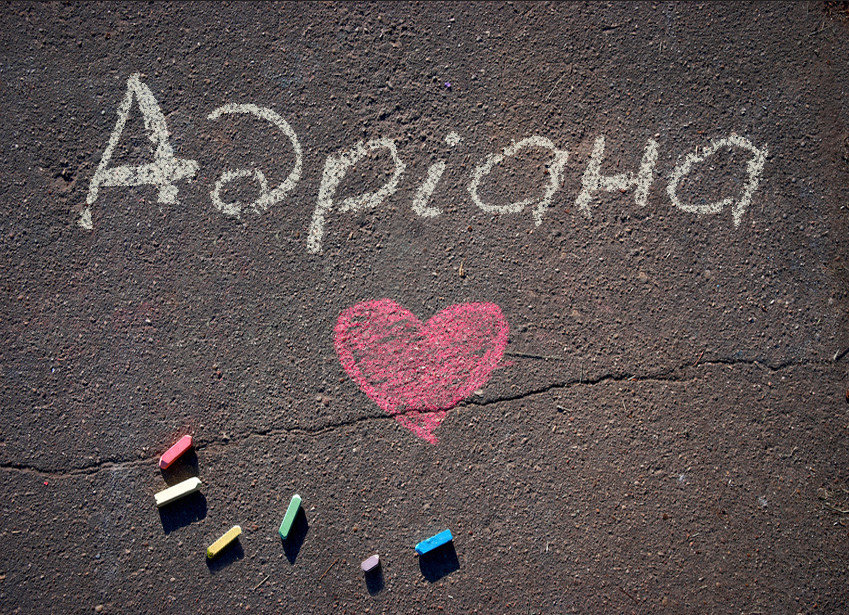 Адріана